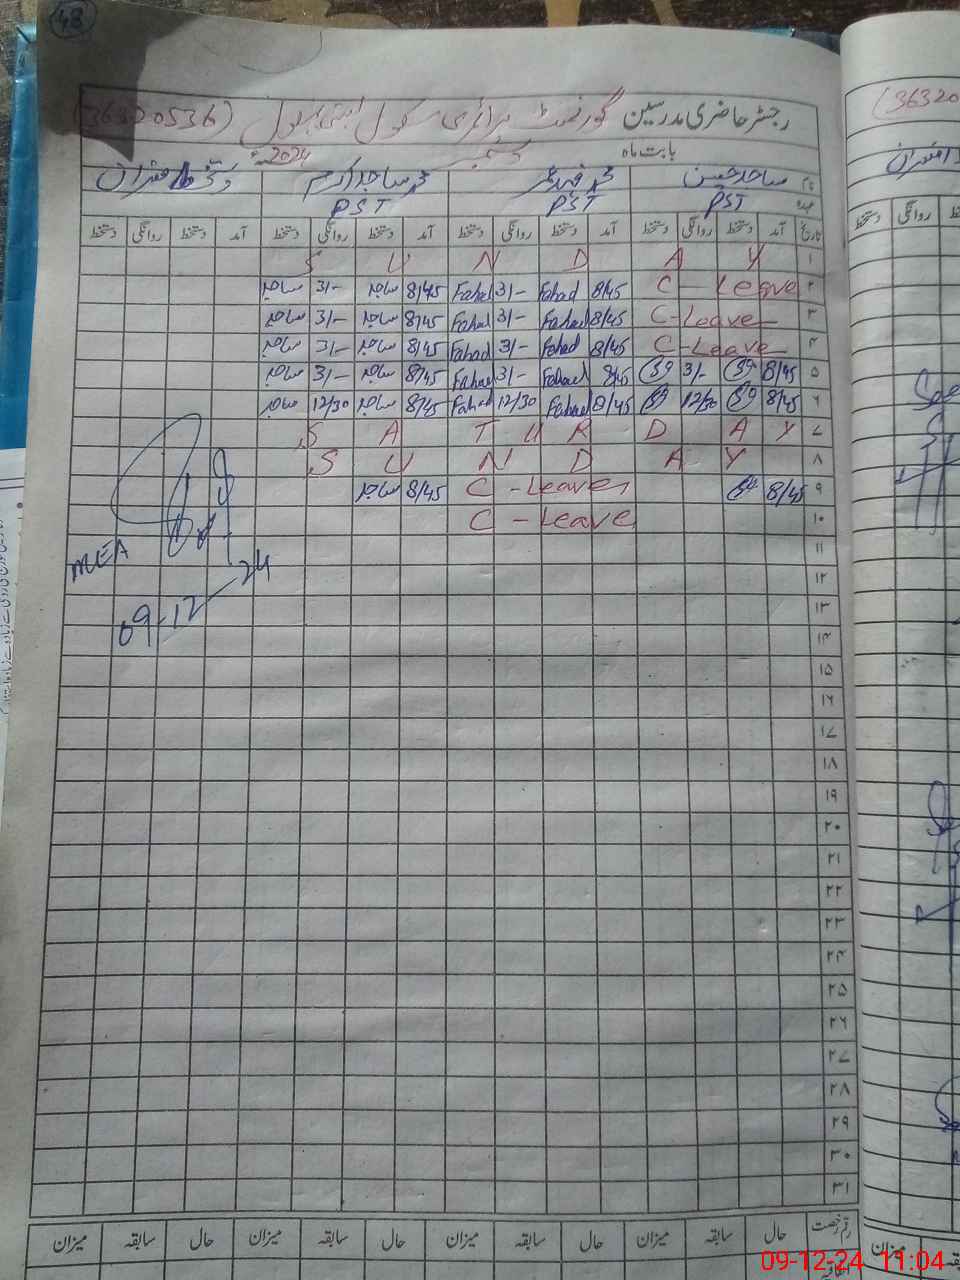 48
رجسٹر حاضری مدرسین گورنمنٹ پرائمری سکول بستی (36320536)
بابت ماہ دسمبر 2024ء
نام ساجد حسین محمد فہد عمر محمد ساجد اکرم دستخط افسران
عہدہ PST PST PST
تاریخ آمد دستخط روانگی دستخط آمد دستخط روانگی دستخط آمد دستخط روانگی دستخط آمد دستخط روانگی دستخط
۱ S U N D A Y
۲ C - Leave 8/45 Fahad 3/- Fahad 8/45 ساجد 3/- ساجد
۳ C - Leave 8/45 Fahad 3/- Fahad 8/45 ساجد 3/- ساجد
۴ C - Leave 8/45 Fahad 3/- Fahad 8/45 ساجد 3/- ساجد
۵ 8/45 3/- 8/45 Fahad 3/- Fahad 8/45 ساجد 3/- ساجد
۶ 8/45 12/30 8/45 Fahad 12/30 Fahad 8/45 ساجد 12/30 ساجد
۷ S A T U R D A Y
۸ S U N D A Y
۹ 8/45 C - Leave 8/45 ساجد
۱۰ C - Leave
۱۱
MEA
۱۲
09-12-24
۱۳
۱۴
۱۵
۱۶
۱۷
۱۸
۱۹
۲۰
۲۱
۲۲
۲۳
۲۴
۲۵
۲۶
۲۷
۲۸
۲۹
۳۰
۳۱
رقم رخصت حال سابقہ میزان حال سابقہ میزان حال سابقہ میزان حال سابقہ میزان
اتفاقیہ
(36320
افسران
روانگی دستخط
میزان
09-12-24 11:04